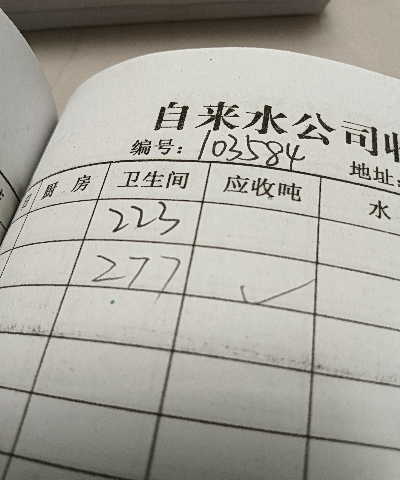 自来水公司收
编号：103584 地址：
厨房 卫生间 应收吨 水
223
277 ✓